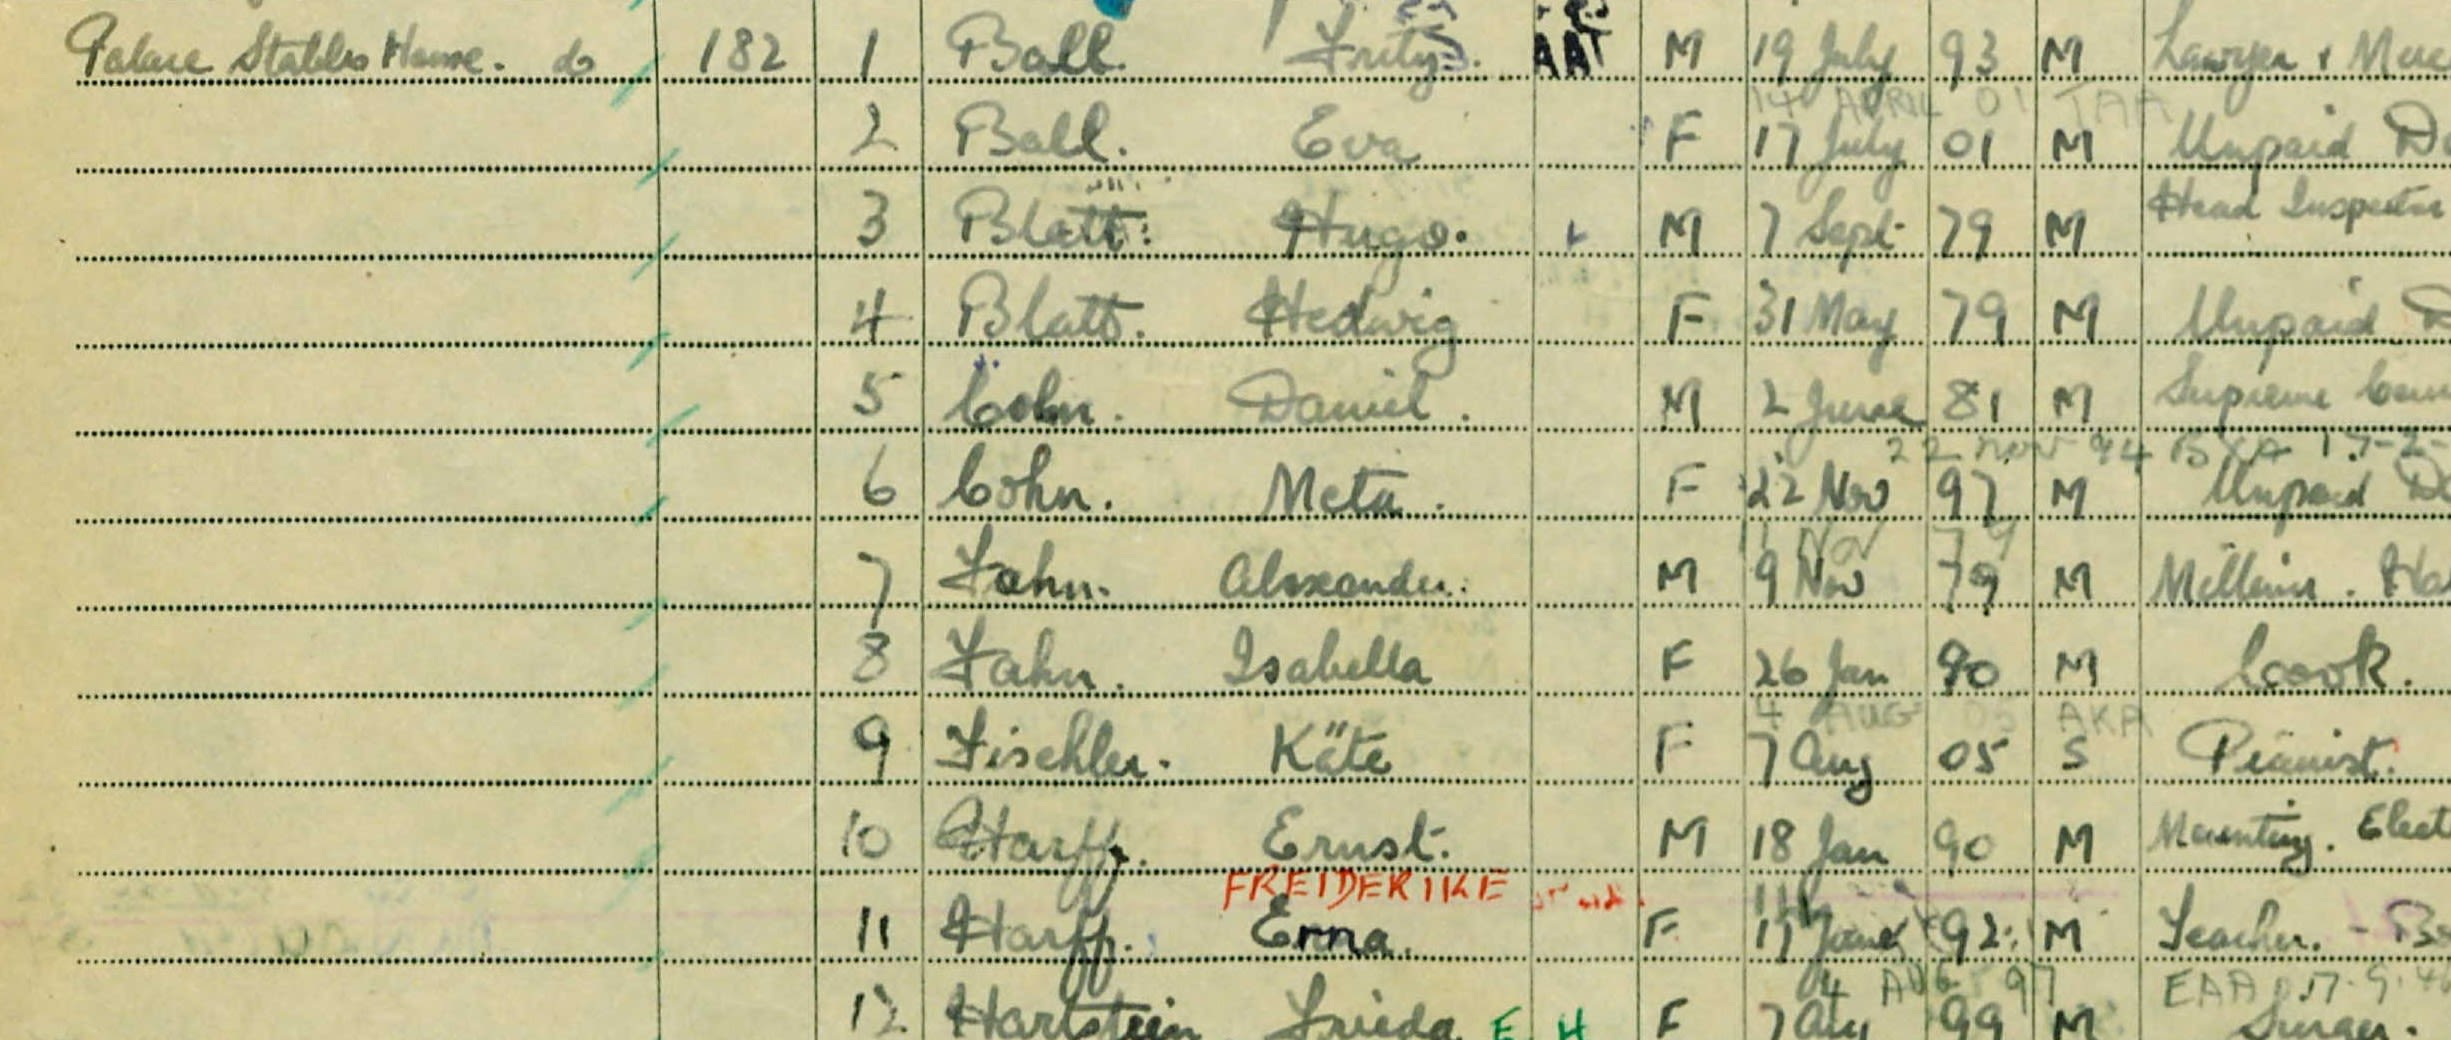 Palace Stables House. do 182 1 Ball. Fritz. AAT M 19 July 93 M Lawyer +
14 APRIL 01 TAA
2 Ball. Eva F 17 July 01 M Unpaid D
3 Blatt. Hugo. M 7 Sept 79 M Head Inspector
4 Blatt. Hedwig F 31 May 79 M Unpaid D
5 Cohn. Daniel. M 2 June 81 M Supreme
22 NOV 94 BXA 17-2-
6 Cohn. Meta. F 22 Nov 97 M Unpaid Do
11 NOV 79
7 Fahn. Alexander. M 9 Nov 79 M Ha
8 Fahn. Isabella F 26 Jan 90 M Cook.
4 AUG 05 AKA
9 Fischler. Käte F 7 Aug 05 S Pianist.
10 Harff. Ernst. M 18 Jan 90 M Mounting. Elect
FREIDERIKE
11 Harff. Erna. F 92 M Teacher. - B
4 AUG 97 EAA 17.9.4
12 Hartstein Frieda E H F 7 Aug 99 M